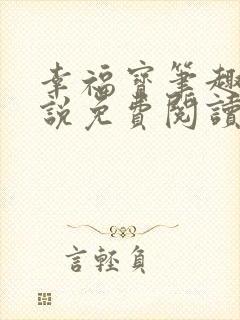 幸福寶筆趣
說免費閱讀
言輕負